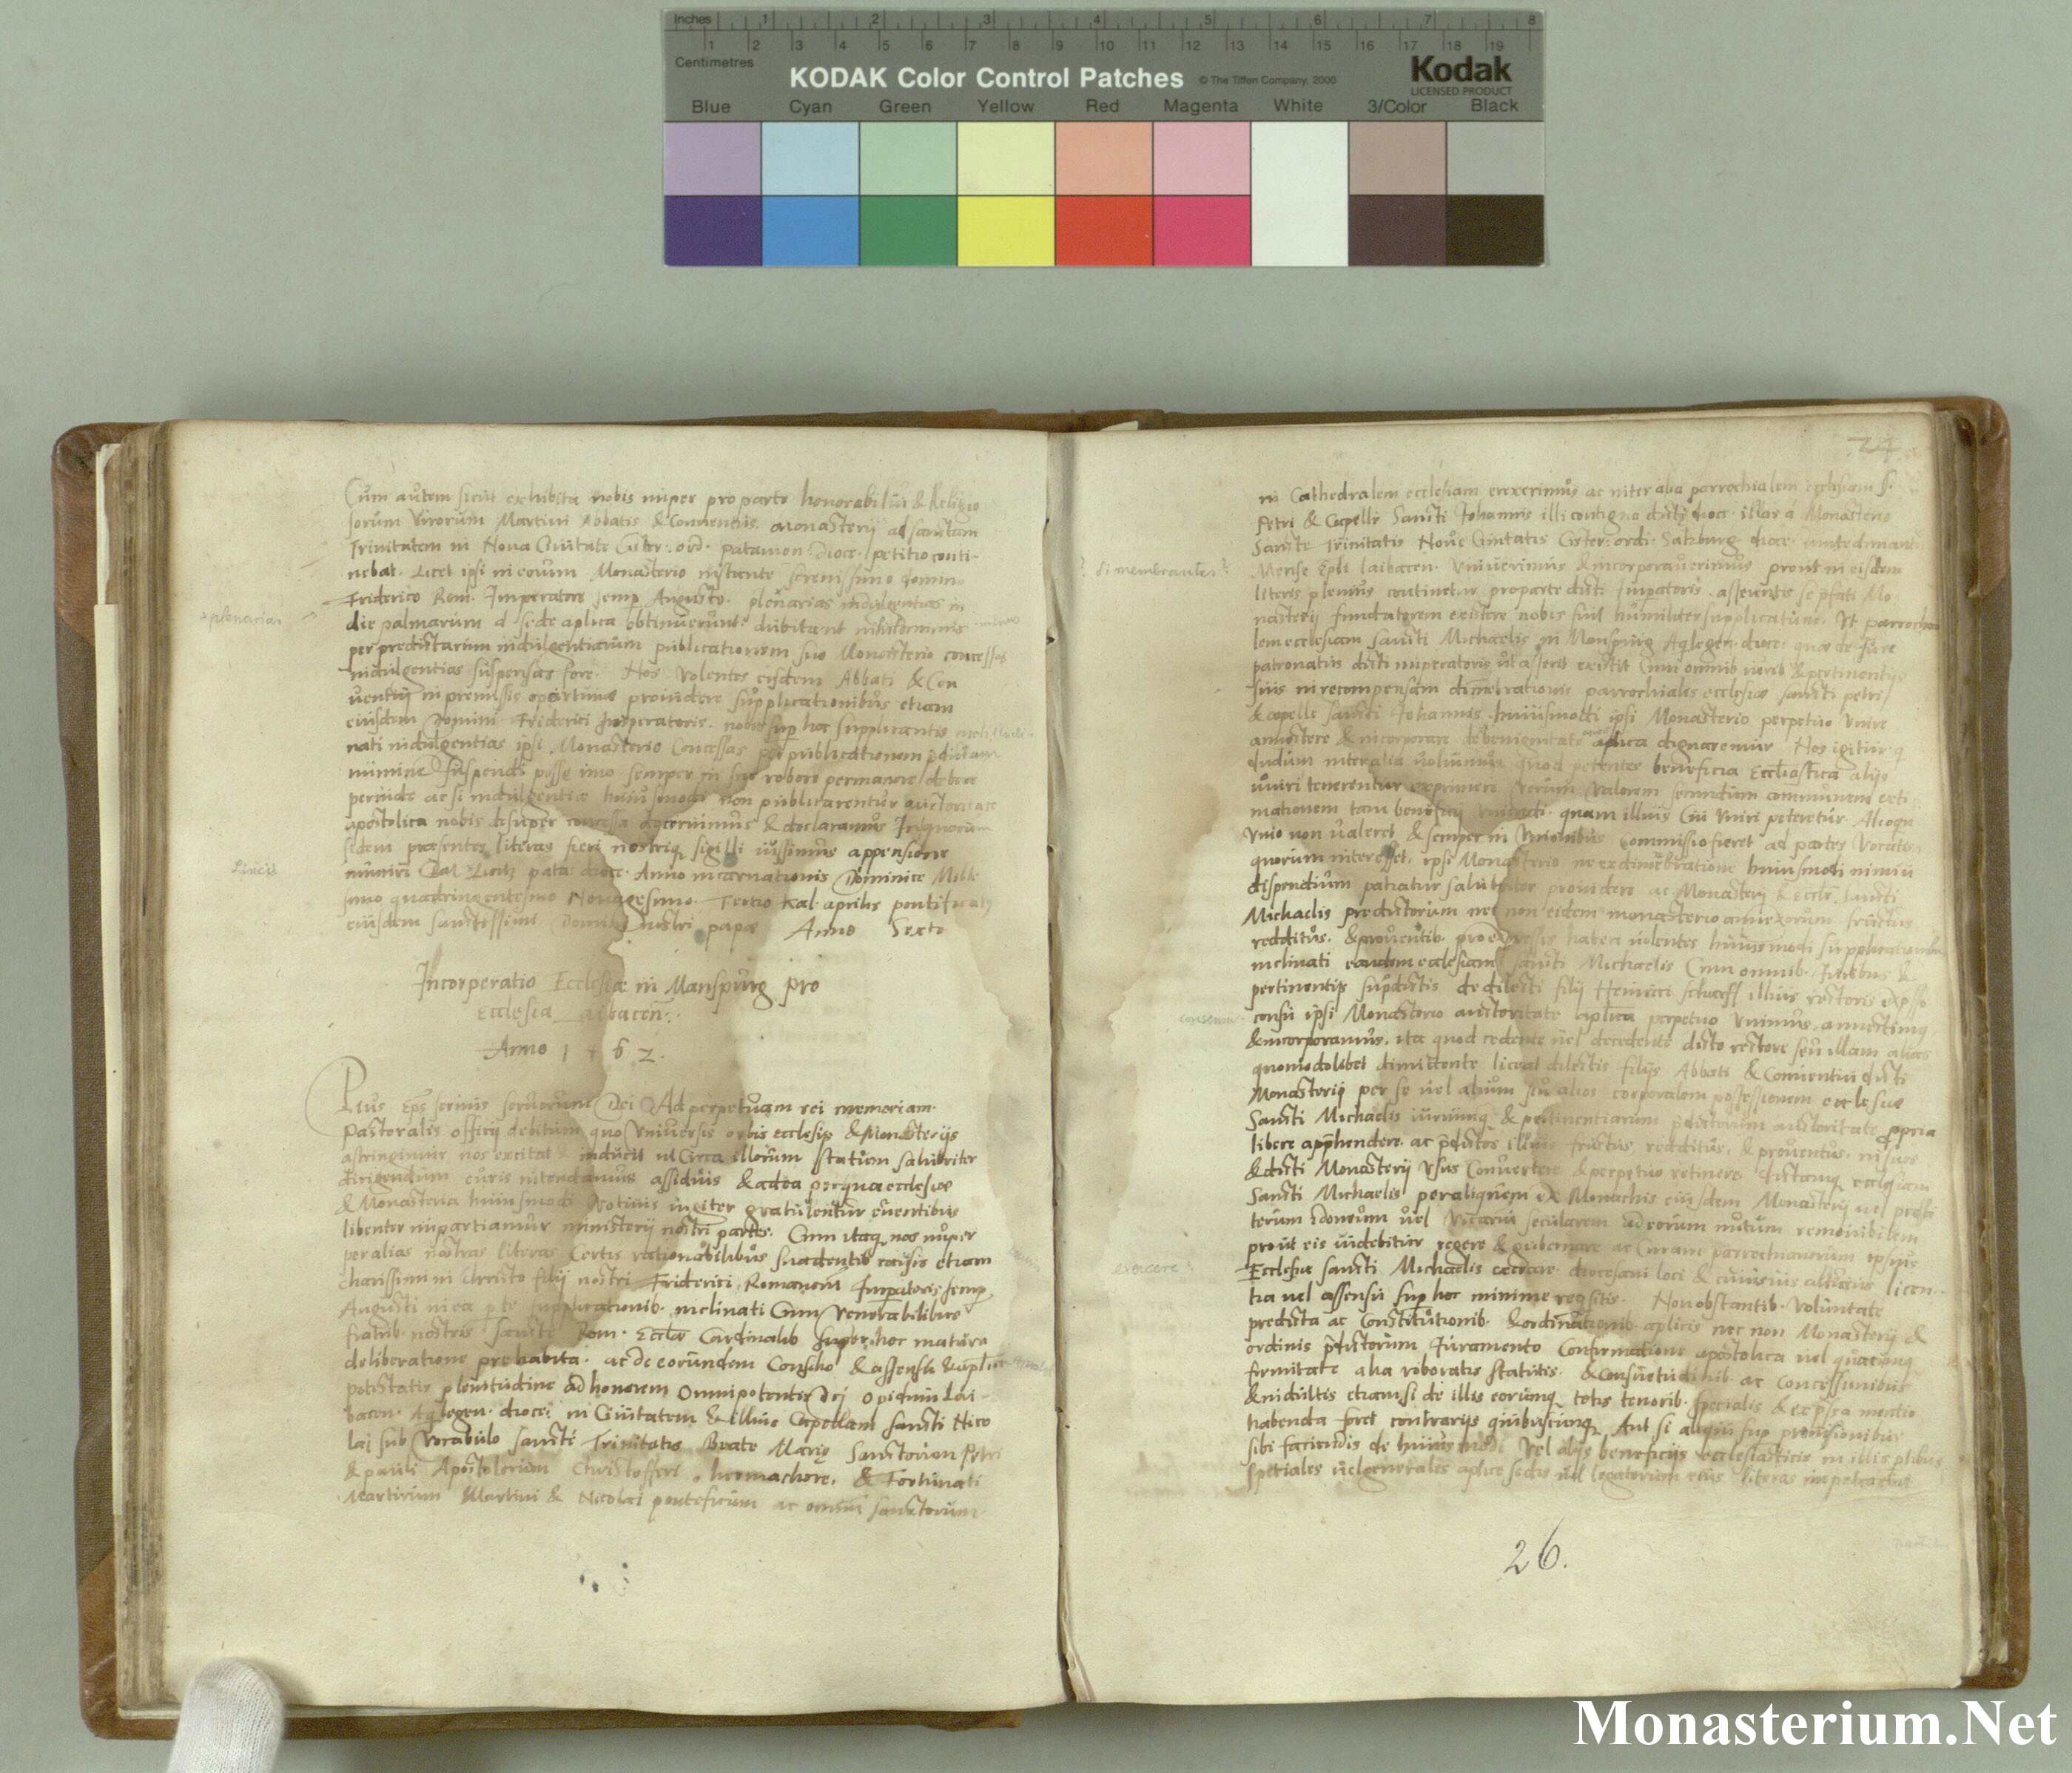 Inches 1 2 3 4 5 6 7 8
1 2 3 4 5 6 7 8 9 10 11 12 13 14 15 16 17 18 19
Centimetres
KODAK Color Control Patches © The Tiffen Company, 2000 Kodak
LICENSED PRODUCT
Blue Cyan Green Yellow Red Magenta White 3/Color Black
Cum autem sicut exhibita nobis nuper pro parte honorabiliū & Religio
sorum Virorum Martini Abbatis & Conuentus Monasterij ad sanctam
Trinitatem in Noua Ciuitate Cister. ord. patauien dioce. petitio conti-
nebat. Licet ipsi in eorum Monasterio instante serenissimo domino
Friderico Rom. Imperatore semp Augusto. plenarias indulgentias in
die palmarum a sede aplica obtinuerunt. dubitant nihilominus
per predictarum indulgentiarum publicationem suo Monasterio concessas
indulgentias suspensas fore. Nos volentes eisdem Abbati & Con
uentui in premissis oportune prouidere supplicationibus etiam
eiusdem Domini Friderici Imperatoris. nobis sup hoc supplicantis
nati indulgentias ipsi Monasterio Concessas per publicationem pdictam
minime suspendi posse imo semper in suo robore permanere debere
perinde ac si indulgentiae huiusmodi non publicarentur auctoritate
apostolica nobis desuper concessa decernimus & declaramus In quorum
fidem praesentes literas fieri nostriq sigilli iussimus appensione
muniri Dat pata dioce. Anno incarnationis Dominice Mille
simo quadringentesimo Nonagesimo. Tertio Kal. aprilis pontificatus
eiusdem sanctissimi Domini nostri papae Anno Sexto
Incorporatio Ecclesiae in Manspurg pro
Ecclesia Laibacen.
Anno 1462.
Pius Eps seruus seruorum Dei Ad perpetuam rei memoriam.
Pastoralis officij debitum quo Vniuersis orbis ecclesijs & Monasterijs
astringimur nos excitat & inducit ut Circa illorum statum salubriter
dirigendum curis intendamus assiduis & adea per quae ecclesiae
& Monasteria huiusmodi votiuis iugiter gratulentur euentibus
libenter impartiamur ministerij nostri partes. Cum itaq nos nuper
per alias nostras literas Certis rationabilibus suadentib causis etiam
charissimi in Christo filij nostri Friderici Romanorū Imperatoris semp
Augusti in ea pte supplicationib. inclinati Cum Venerabilibus
fratrib. nostris sancte Rom. Eccliae Cardinalib super hoc matura
deliberatione prehabita. ac de eorundem Consilio & assensu
potestatis plenitudine ad honorem Omnipotentis Dei opidum Lai-
bacen. Aqlegen. dioce. in Ciuitatem & illius Capellam sancti Nico
lai sub Vocabulo sancte Trinitatis Beate Marię Sanctorum Petri
& pauli Apostolorum Christofferi, hermachore, & Fortunati
Martirum Martini & Nicolai pontificum ac omniū sanctorum
plenarias
24
in Cathedralem ecclesiam erexerimus ac inter alia parrochialem ecclesiam s.
Petri & Capelle Sancti Johannis illi contiguo dicti dioce. illas a Monasterio
Sancte Trinitatis Noue Ciuitatis Cister. ordi. Saltzburg dioce.
Mense Epli Laibacen. Vniuerimus & incorporauerimus prout in eisdem
literis plenius continetur pro parte dicti Impatoris asserentis se pfati Mo
nasterij fundatorem existere nobis fuit humiliter supplicatum. Vt parrochia
lem ecclesiam sancti Michaelis in Manspurg Aqlegen. dioce. quae de Jure
patronatus dicti imperatoris ut asserit existit Cum omnib iurib & pertinentijs
suis in recompensam dimēbrationis parrochialis ecclesiae sancti petri
& capelle sancti Johannis huiusmodi ipsi Monasterio perpetuo vnire
annectere & incorporare de benignitate aplica dignaremur Nos igitur q
dudum inter alia uoluimus quod petentes beneficia Eccliastica alijs
uniri tenerentur exprimere verum valorem secundum communem exti
mationem tam beneficij uniendi quam illius Cui Vniri peteretur. Alioqn
Vnio non ualeret & semper in Vnionibus Commissio fieret ad partes Vocatis
quorum interesset. ipsi Monasterio ne ex dimēbratione huiusmodi nimiū
dispendium patiatur salubriter prouidere ac Monasterij & Eccle. Sancti
Michaelis predictorum nec non eidem monasterio annexorum fructus
redditus. & prouentib. pro expressis haberi uolentes huiusmodi supplicationibus
inclinati eandem ecclesiam sancti Michaelis Cum omnib. Juribus &
pertinentijs supdictis de dilecti filij Heinrici illius rectoris expsso
consū ipsi Monasterio auctoritate aplica perpetuo Vnimus, annectimq
& incorporamus. ita quod cedente uel decedente dicto rectore seu illam alias
quomodolibet dimittente liceat dilectis filijs Abbati & Conuentui dicti
Monasterij per se uel alium seu alios corporalem possessionem ecclesiae
Sancti Michaelis iuriumq & pertinentiarum pdictorum auctoritate ppria
libere apphendere. ac pdictos illius fructus, redditus, & prouentus. in suos
& dicti Monasterij Vsus Conuertere & perpetuo retinere Dictamq ecclesiam
Sancti Michaelis per aliquem ex Monachis eiusdem Monasterij uel presbi
terum idoneum uel Vicariū secularem ad eorum nutum remouibilem
prout eis uidebitur regere & gubernare ac Curam parrochianorum ipsius
Ecclesiae sancti Michaelis exercere diocesani loci & cuiusuis alterius licen
tia uel assensu sup hoc minime reqsitis. Non obstantib. Voluntate
predicta ac Constitutionib. & ordinationib aplicis nec non Monasterij &
ordinis pdictorum Juramento Confirmatione apostolica uel quacunq
firmitate alia roboratis statutis. & Consuetudinib. ac Concessionibus
& indultis etiam si de illis eorumq totis tenorib. specialis & expssa mentio
habenda foret contrarijs quibuscunq Aut si aliqui sup prouisionibus
sibi faciendis de huiusmodi Vel alijs beneficijs ecclesiasticis in illis ptibus
speciales uel generales aplice sedis uel legatorum eius literas impetrarint
26.
Monasterium.Net